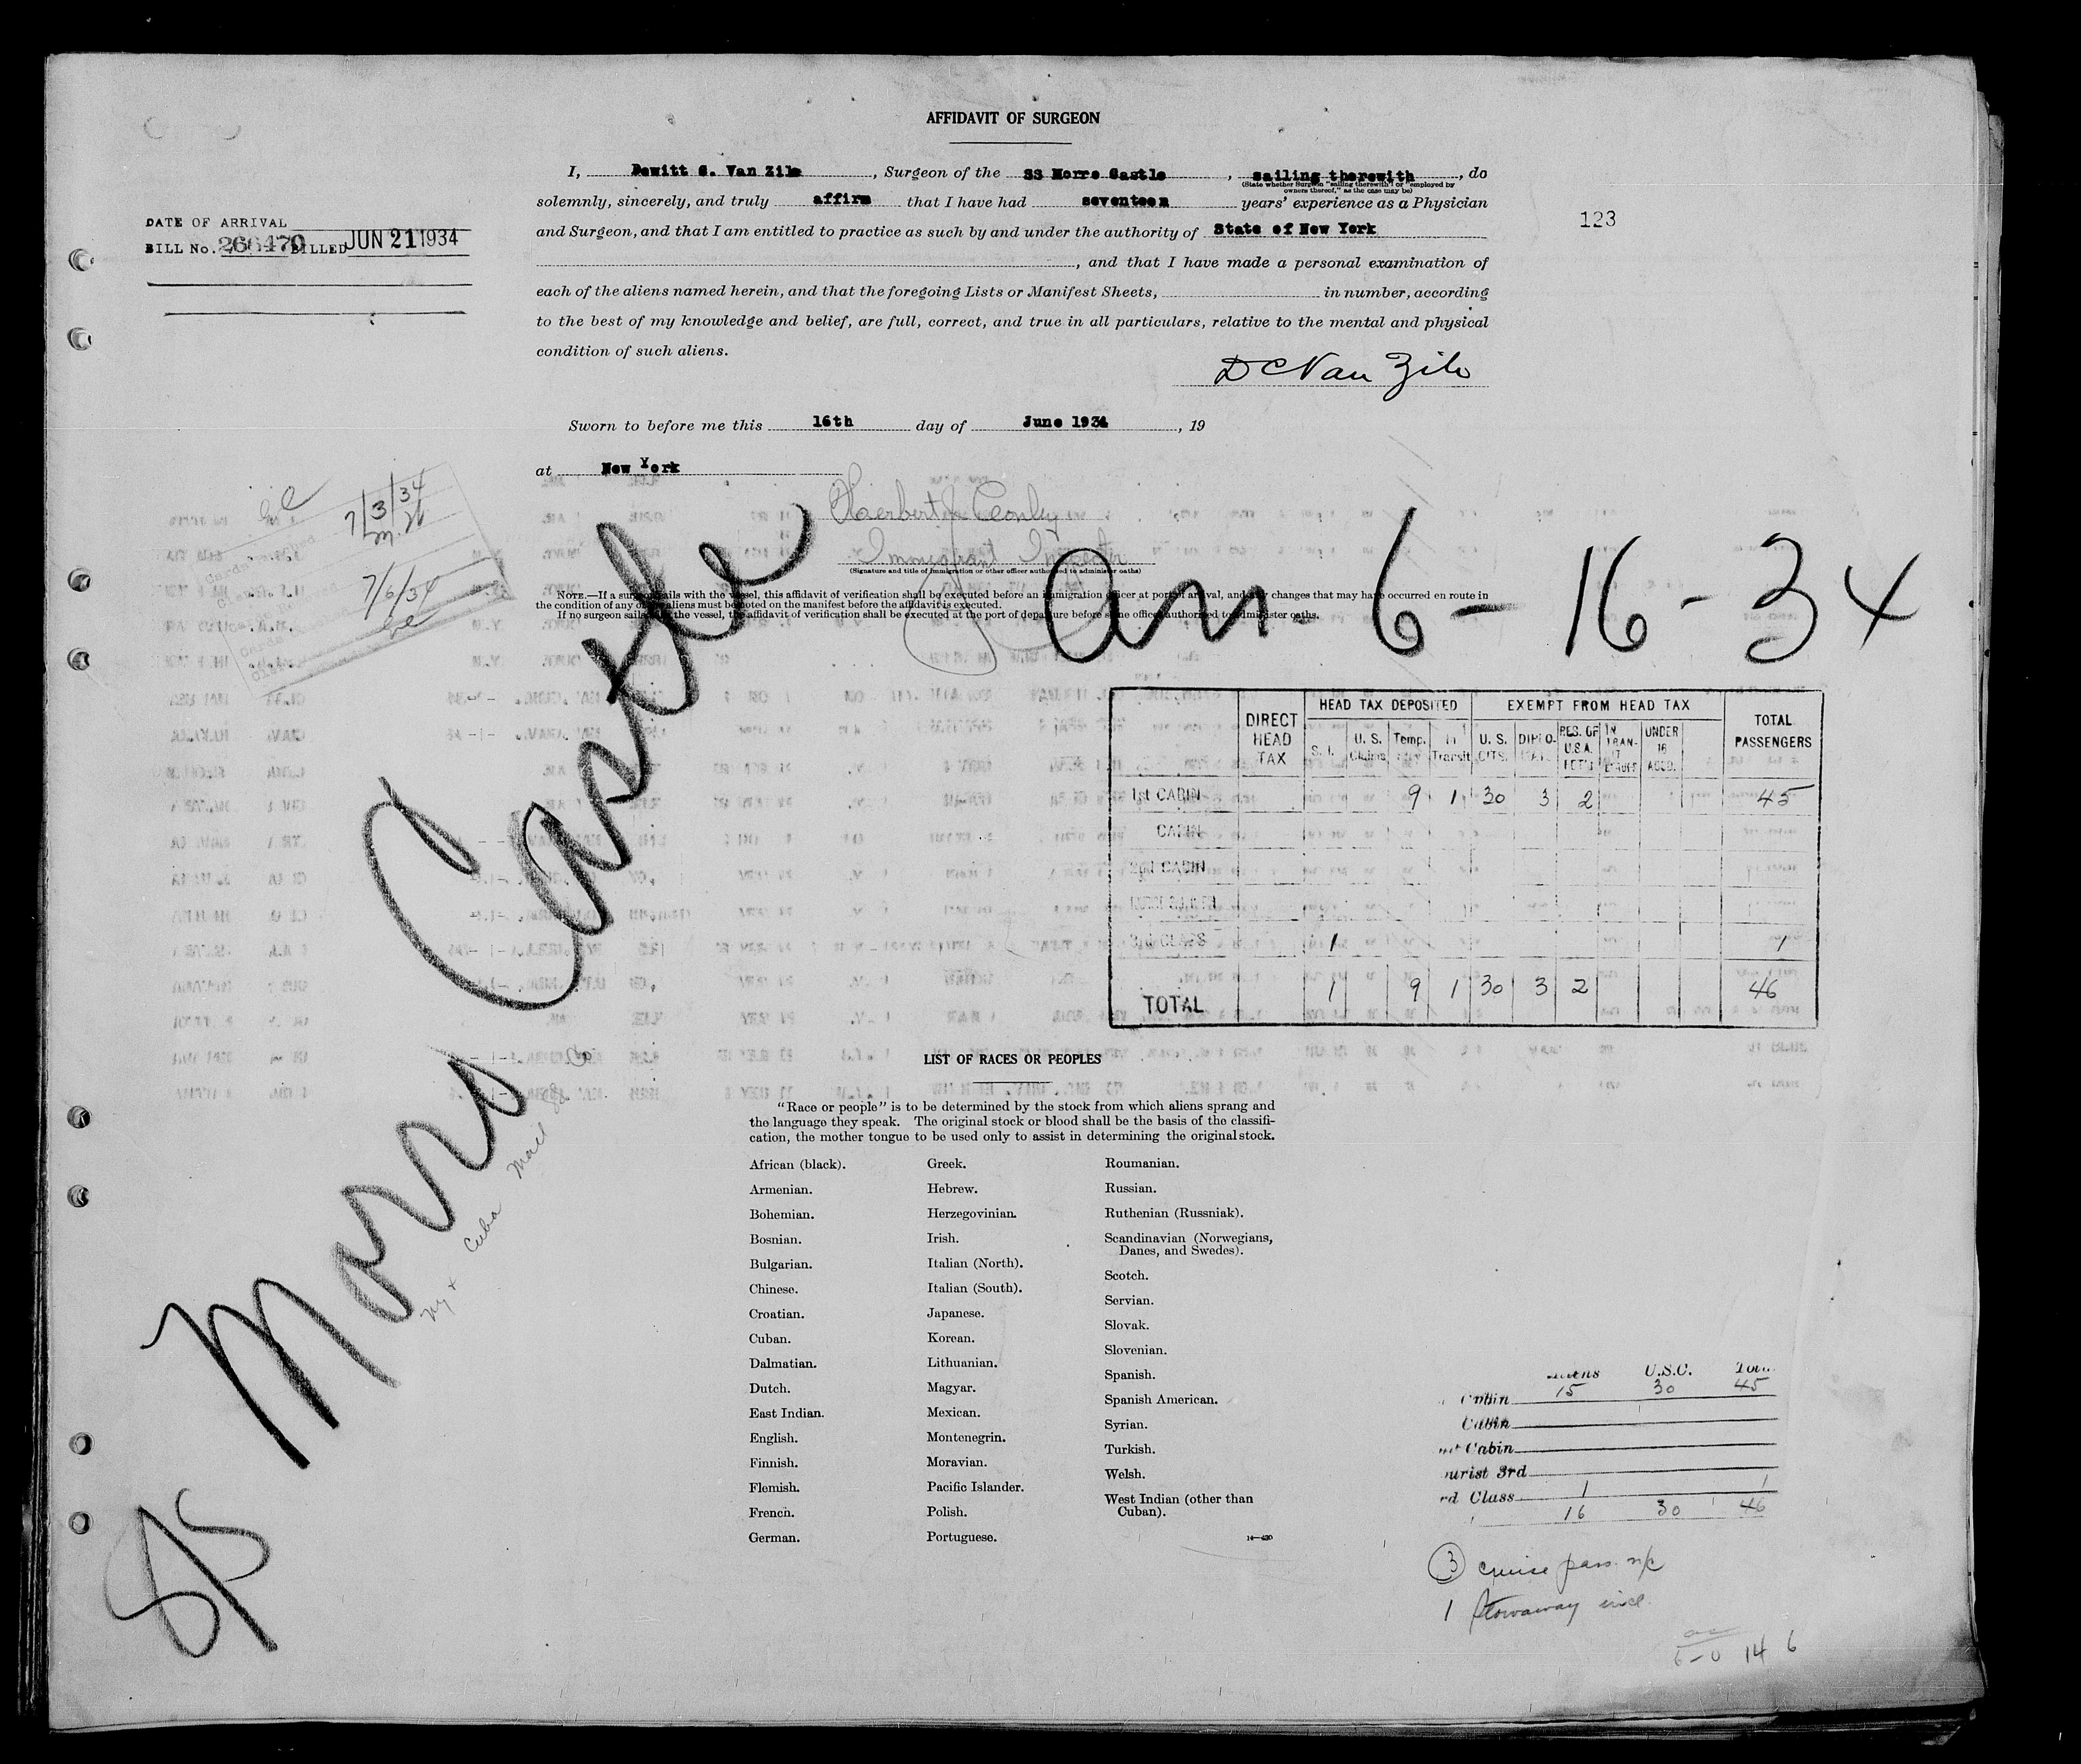 AFFIDAVIT OF SURGEON
I, Dewitt C. Van Zile, Surgeon of the SS Morro Castle, sailing therewith, do
(State whether Surgeon "sailing therewith" or "employed by
owners thereof," as the case may be)
solemnly, sincerely, and truly affirm that I have had seventeen years' experience as a Physician
and Surgeon, and that I am entitled to practice as such by and under the authority of State of New York
, and that I have made a personal examination of
each of the aliens named herein, and that the foregoing Lists or Manifest Sheets, in number, according
to the best of my knowledge and belief, are full, correct, and true in all particulars, relative to the mental and physical
condition of such aliens.
DATE OF ARRIVAL
BILL No. 266470 BILLED JUN 21 1934
123
D C Van Zile
Sworn to before me this 16th day of June 1934, 19
at New York
7/3/34
7/6/34
Immigrant Inspector
(Signature and title of immigration or other officer authorized to administer oaths)
NOTE.—If a surgeon sails with the vessel, this affidavit of verification shall be executed before an immigration officer at port of arrival, and any changes that may have occurred en route in
the condition of any of the aliens must be noted on the manifest before the affidavit is executed.
If no surgeon sails with the vessel, the affidavit of verification shall be executed at the port of departure before some officer authorized to administer oaths.
Arr - 6 - 16 - 34
S/S Morro Castle
NY & Cuba Mail SS Co
DIRECT HEAD TAX HEAD TAX DEPOSITED EXEMPT FROM HEAD TAX TOTAL PASSENGERS
S. I. U. S. Claims Temp. In Transit U. S. CITS. DIPLO- RES. OF U.S.A. IN TRAN- UNDER 16
1st CABIN 9 1 30 3 2 45
CABIN
2nd CABIN
3rd CLASS 1 1
TOTAL 1 9 1 30 3 2 46
LIST OF RACES OR PEOPLES
"Race or people" is to be determined by the stock from which aliens sprang and
the language they speak. The original stock or blood shall be the basis of the classifi-
cation, the mother tongue to be used only to assist in determining the original stock.
African (black).
Armenian.
Bohemian.
Bosnian.
Bulgarian.
Chinese.
Croatian.
Cuban.
Dalmatian.
Dutch.
East Indian.
English.
Finnish.
Flemish.
French.
German.
Greek.
Hebrew.
Herzegovinian.
Irish.
Italian (North).
Italian (South).
Japanese.
Korean.
Lithuanian.
Magyar.
Mexican.
Montenegrin.
Moravian.
Pacific Islander.
Polish.
Portuguese.
Roumanian.
Russian.
Ruthenian (Russniak).
Scandinavian (Norwegians,
Danes, and Swedes).
Scotch.
Servian.
Slovak.
Slovenian.
Spanish.
Spanish American.
Syrian.
Turkish.
Welsh.
West Indian (other than
Cuban).
14—430
U.S.C.
Cabin 15 30 45
Cabin
Cabin
urist 3rd
rd Class 1 1
16 30 46
3 cruise pass. n/c
1 Stowaway incl.
14 6